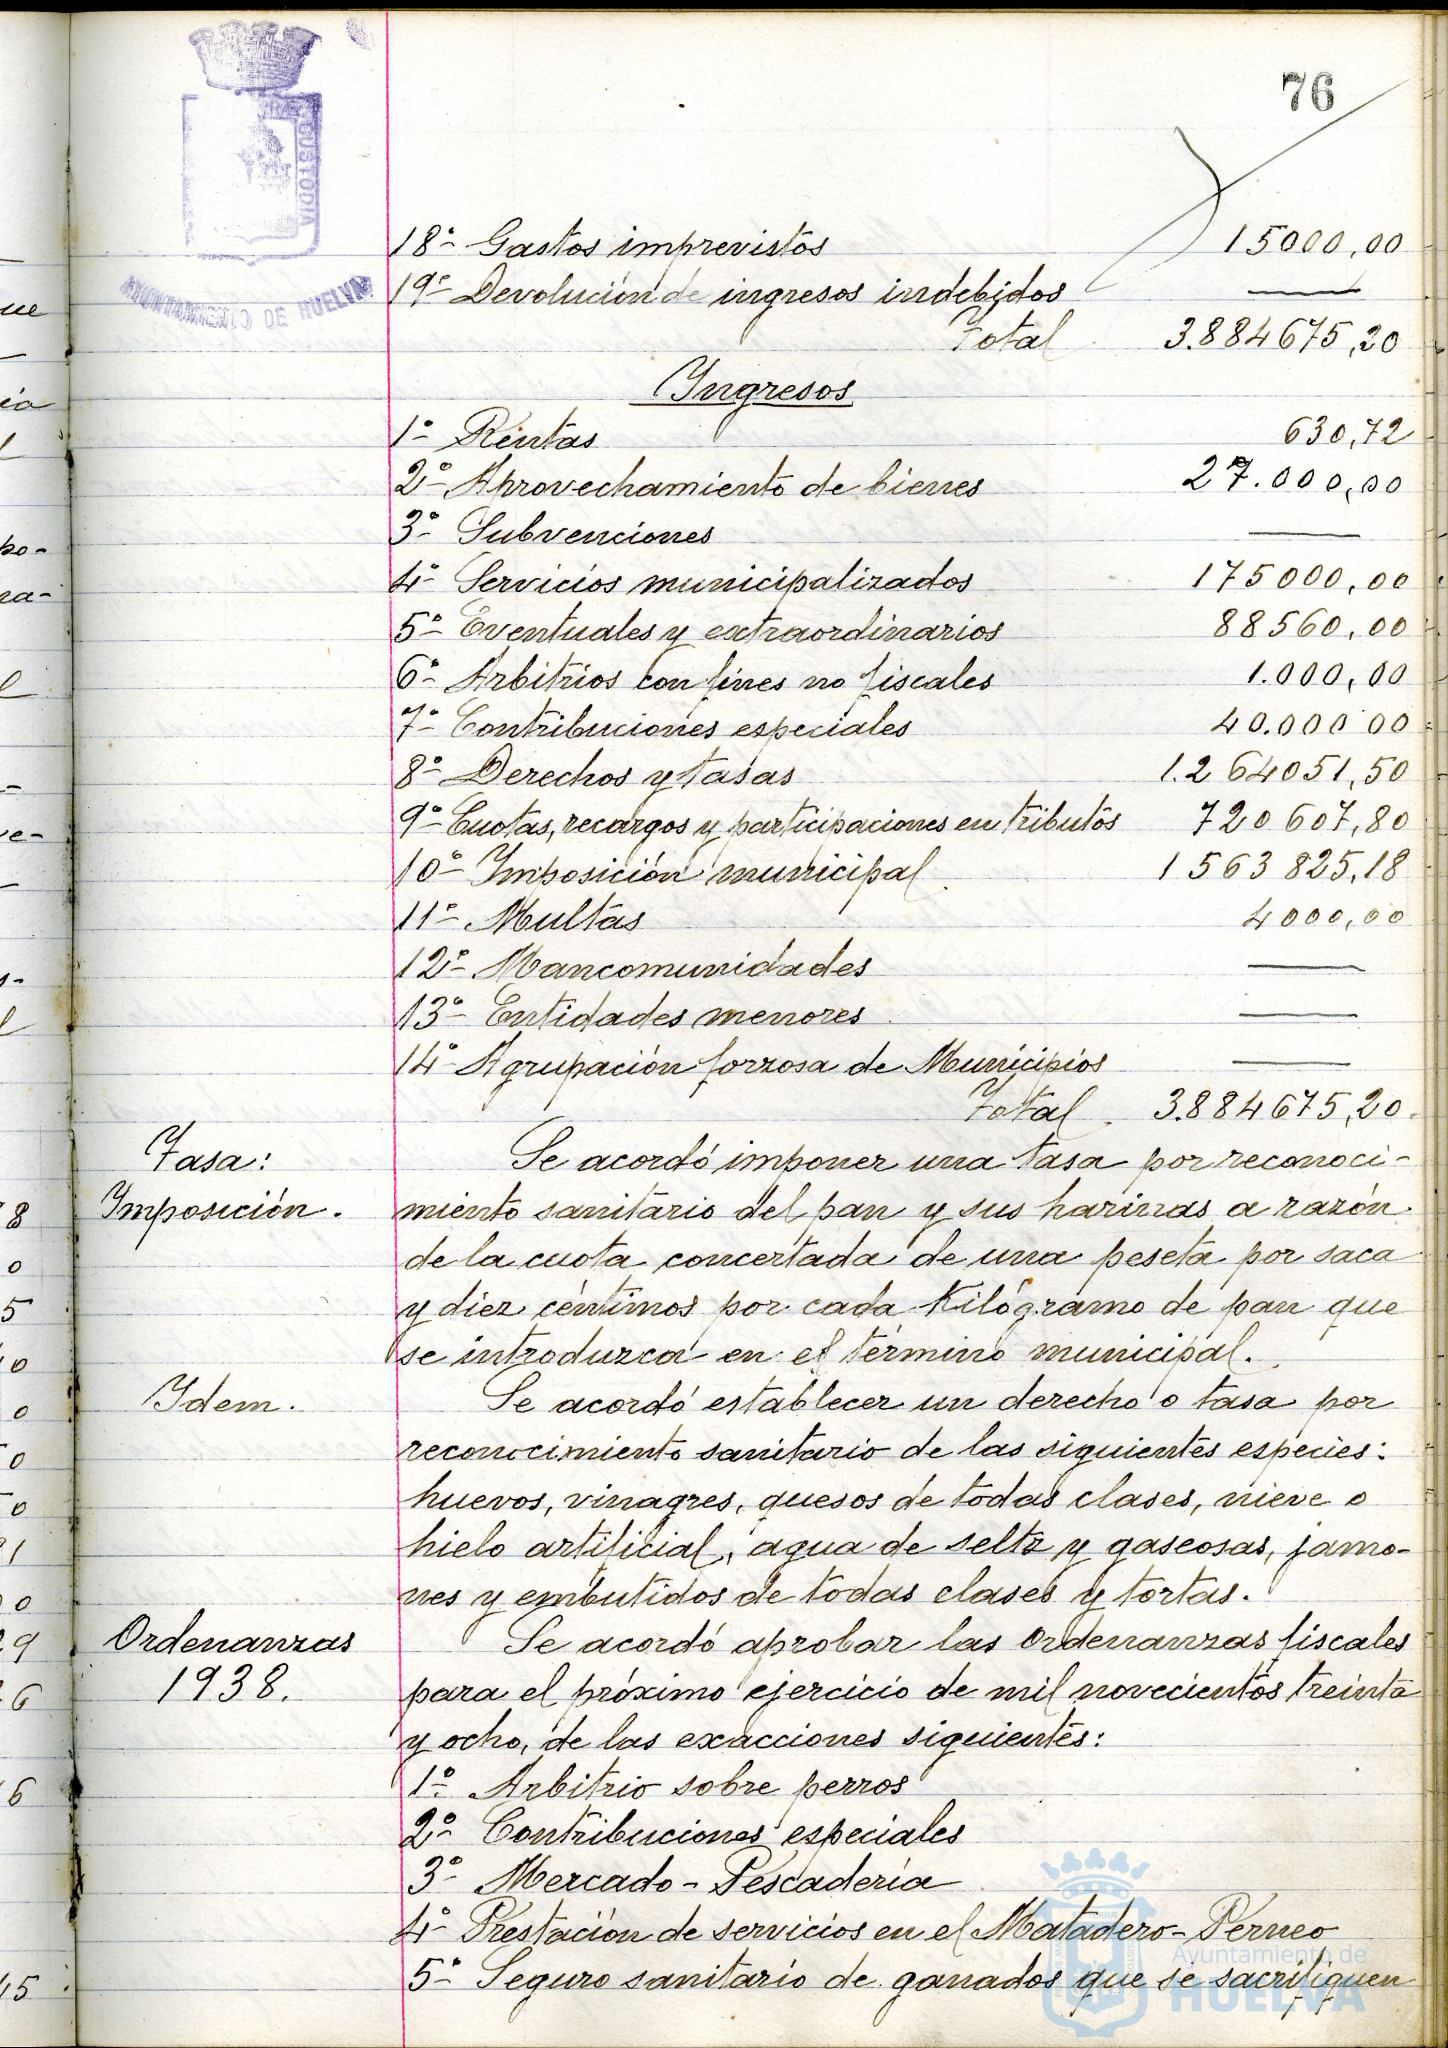 76
CUSTODIA
AYUNTAMIENTO DE HUELVA
18º- Gastos imprevistos 15000,00
19º- Devolución de ingresos indebidos —
Total 3.884675,20
Ingresos
1º- Rentas 630,72
2º- Aprovechamiento de bienes 27.000,00
3º- Subvenciones —
4º- Servicios municipalizados 175000,00
5º- Eventuales y extraordinarios 88560,00
6º- Arbitrios con fines no fiscales 1.000,00
7º- Contribuciones especiales 40.000 00
8º- Derechos y tasas 1.264051,50
9º- Cuotas, recargos y participaciones en tributos 720607,80
10º- Imposición municipal 1563825,18
11º- Multas 4000,00
12º- Mancomunidades —
13º- Entidades menores —
14º- Agrupación forzosa de Municipios —
Total 3.884675,20.
Tasa: Se acordó imponer una tasa por reconoci-
Imposición. miento sanitario del pan y sus harinas a razón
de la cuota concertada de una peseta por saca
y diez céntimos por cada Kilógramo de pan que
se introduzca en el término municipal.
Idem. Se acordó establecer un derecho o tasa por
reconocimiento sanitario de las siguientes especies:
huevos, vinagres, quesos de todas clases, nieve o
hielo artificial, agua de seltz y gaseosas, jamo-
nes y embutidos de todas clases y tortas.
Ordenanzas Se acordó aprobar las Ordenanzas fiscales
1938. para el próximo ejercicio de mil novecientos treinta
y ocho, de las exacciones siguientes:
1º- Arbitrio sobre perros
2º- Contribuciones especiales
3º- Mercado - Pescadería
4º- Prestación de servicios en el Matadero - Perneo
5º- Seguro sanitario de ganados que se sacrifiquen
Ayuntamiento de
HUELVA